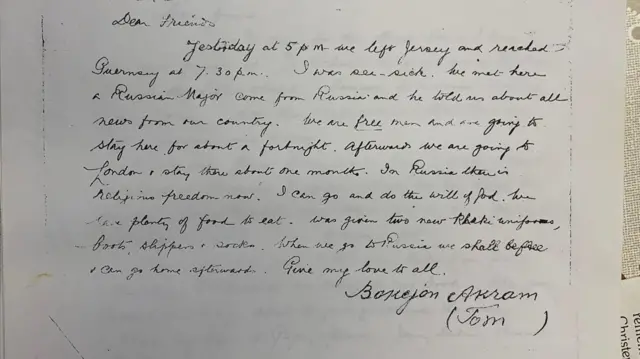 Dear Friends
Yesterday at 5 pm we left Jersey and reached
Guernsey at 7.30 p.m. I was sea-sick. We met here
a Russian Major come from Russia and he told us about all
news from our country. We are free men and are going to
stay here for about a fortnight. Afterwards we are going to
London & stay there about one month. In Russia there is
religious freedom now. I can go and do the will of God. We
have plenty of food to eat. Was given two new khaki uniforms,
Boots, slippers & socks. When we go to Russia we shall be free
& can go home afterwards. Give my love to all.
Bokejon Akram
(Tom)
Christe